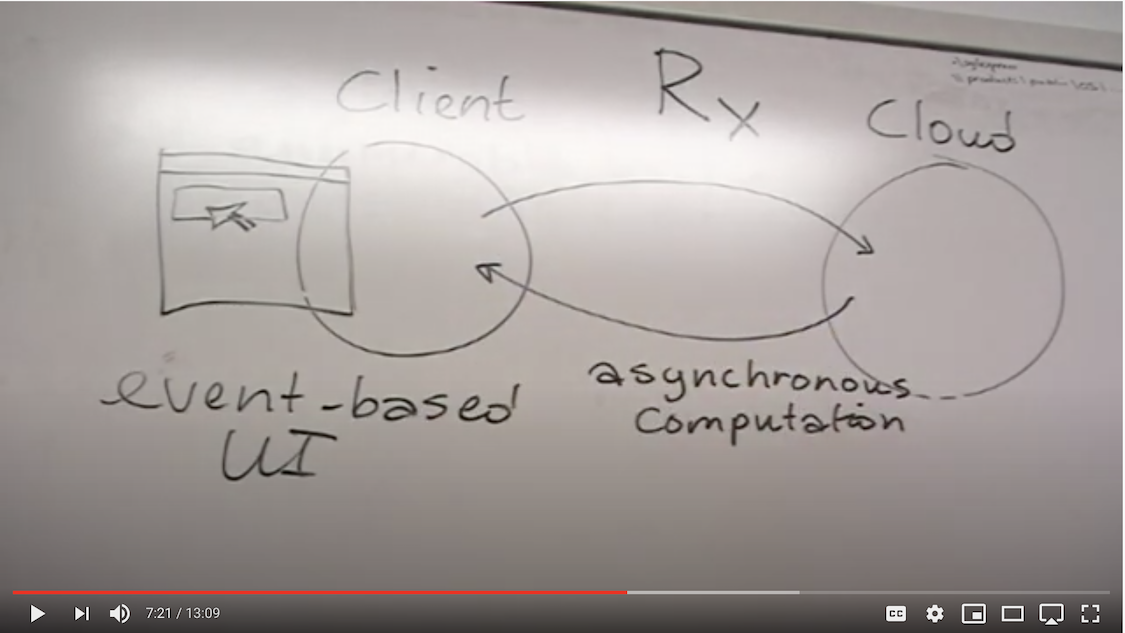 Client
Rx
Cloud
event-based
UI
asynchronous
Computation
7:21 / 13:09
CC